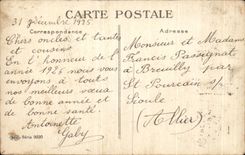 CARTE POSTALE
31 Décembre 1925.
Correspondance
Adresse
Chers oncles et tantes
et cousins
En l'honneur de l'
année 1926 nous vous
envoyons à toute
nos meilleurs vœux
de bonne année et
de bonne santé.
Antoinette
Gaby
Monsieur et Madame
Francis Passignat
à Breuilly par
St Pourcain s/
Sioule
(Allier)
Série